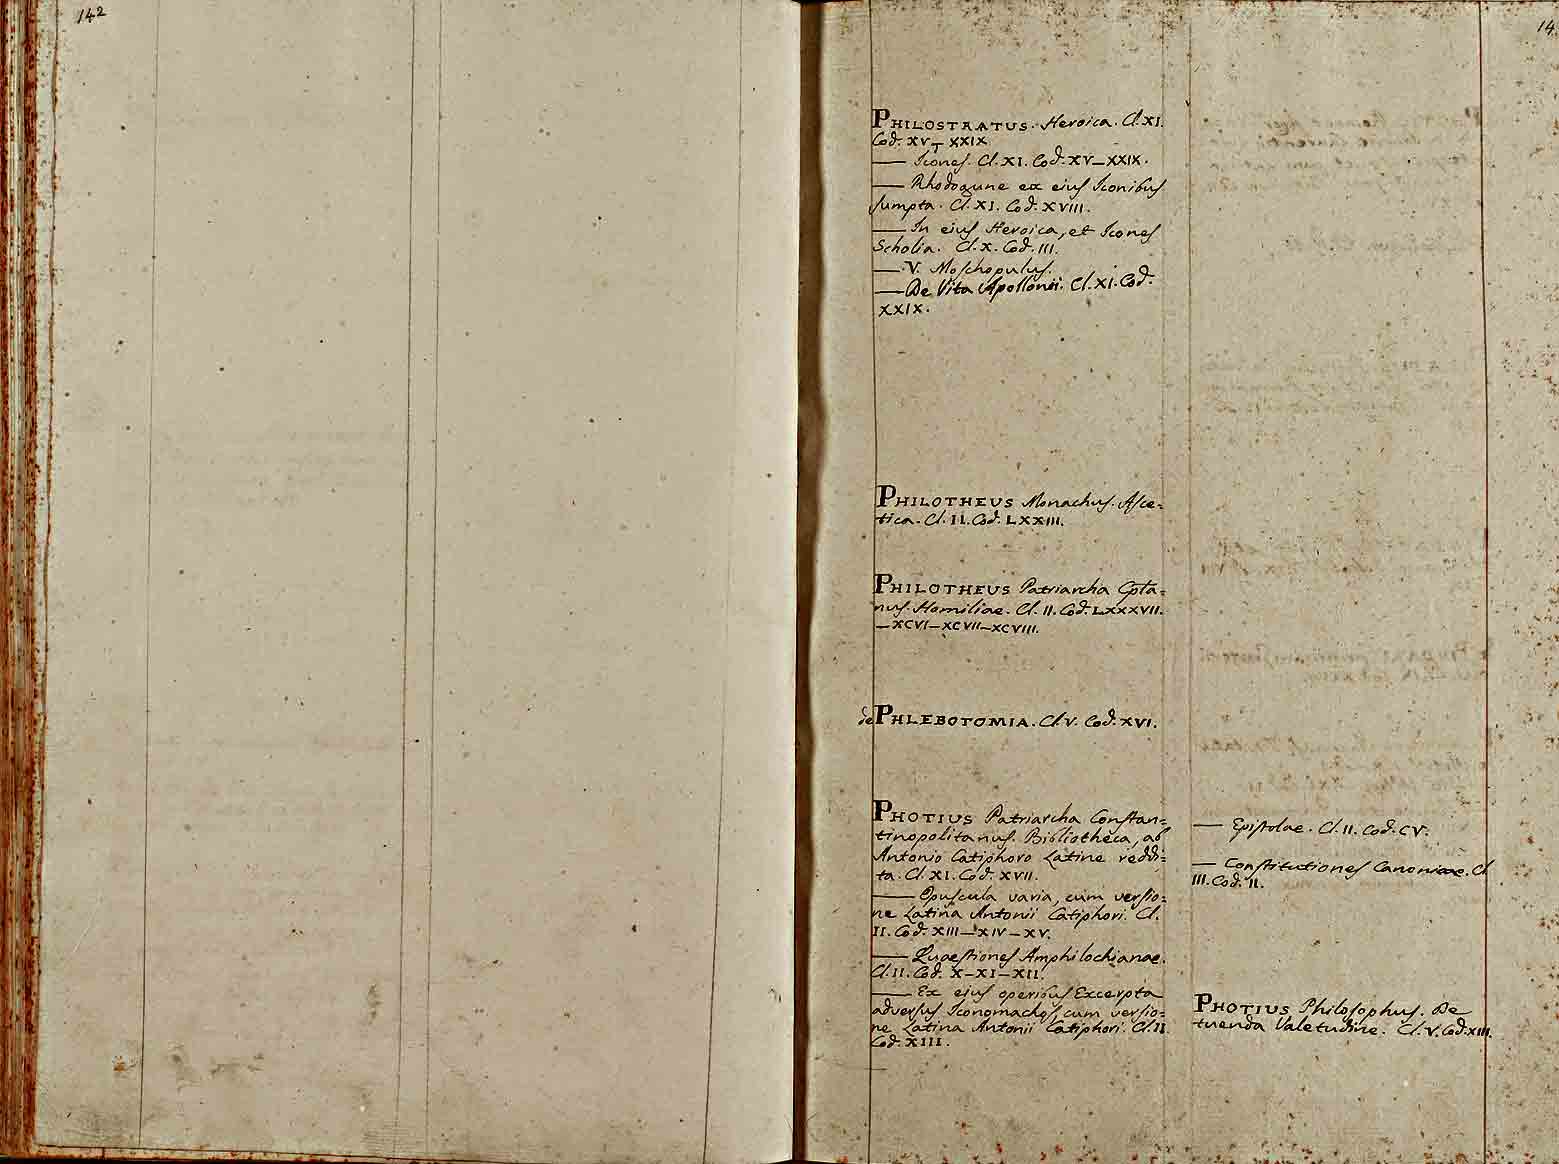 142
14
PHILOSTRATUS. Heroica. Cl. XI.
Cod. XV_XXIX.
— Icones. Cl. XI. Cod. XV_XXIX.
— Rhodogune ex eius Iconibus
sumpta. Cl. XI. Cod. XVIII.
— In eius Heroica, et Icones
Scholia. Cl. X. Cod. III.
— V. Moschopulus.
— De Vita Apollonii. Cl. XI. Cod.
XXIX.
PHILOTHEUS Monachus. Asce=
tica. Cl. II. Cod. LXXIII.
PHILOTHEUS Patriarcha Cpta=
nus. Homiliae. Cl. II. Cod. LXXXVII.
_XCVI_XCVII_XCVIII.
de PHLEBOTOMIA. Cl. V. Cod. XVI.
PHOTIUS Patriarcha Constan=
tinopolitanus. Bibliotheca, ab
Antonio Catiphoro Latine reddi=
ta. Cl. XI. Cod. XVII.
— Opuscula varia, cum versio=
ne Latina Antonii Catiphori. Cl.
II. Cod. XIII_XIV_XV.
— Quaestiones Amphilochianae.
Cl. II. Cod. X_XI_XII.
— Ex eius operibus Excerpta
adversus Iconomachos cum versio=
ne Latina Antonii Catiphori. Cl. II
Cod. XIII.
— Epistolae. Cl. II. Cod. CV.
— Constitutiones Canonicae. Cl
III. Cod. II.
PHOTIUS Philosophus. De
tuenda Valetudine. Cl. V. Cod. XIII.